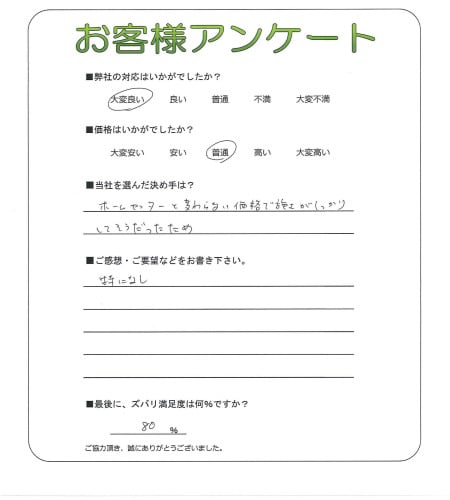 お客様アンケート
■弊社の対応はいかがでしたか？
大変良い 良い 普通 不満 大変不満
■価格はいかがでしたか？
大変安い 安い 普通 高い 大変高い
■当社を選んだ決め手は？
ホームセンターと変わらない価格で施工がしっかり
してそうだったため
■ご感想・ご要望などをお書き下さい。
特になし
■最後に、ズバリ満足度は何%ですか？
80 %
ご協力頂き、誠にありがとうございました。